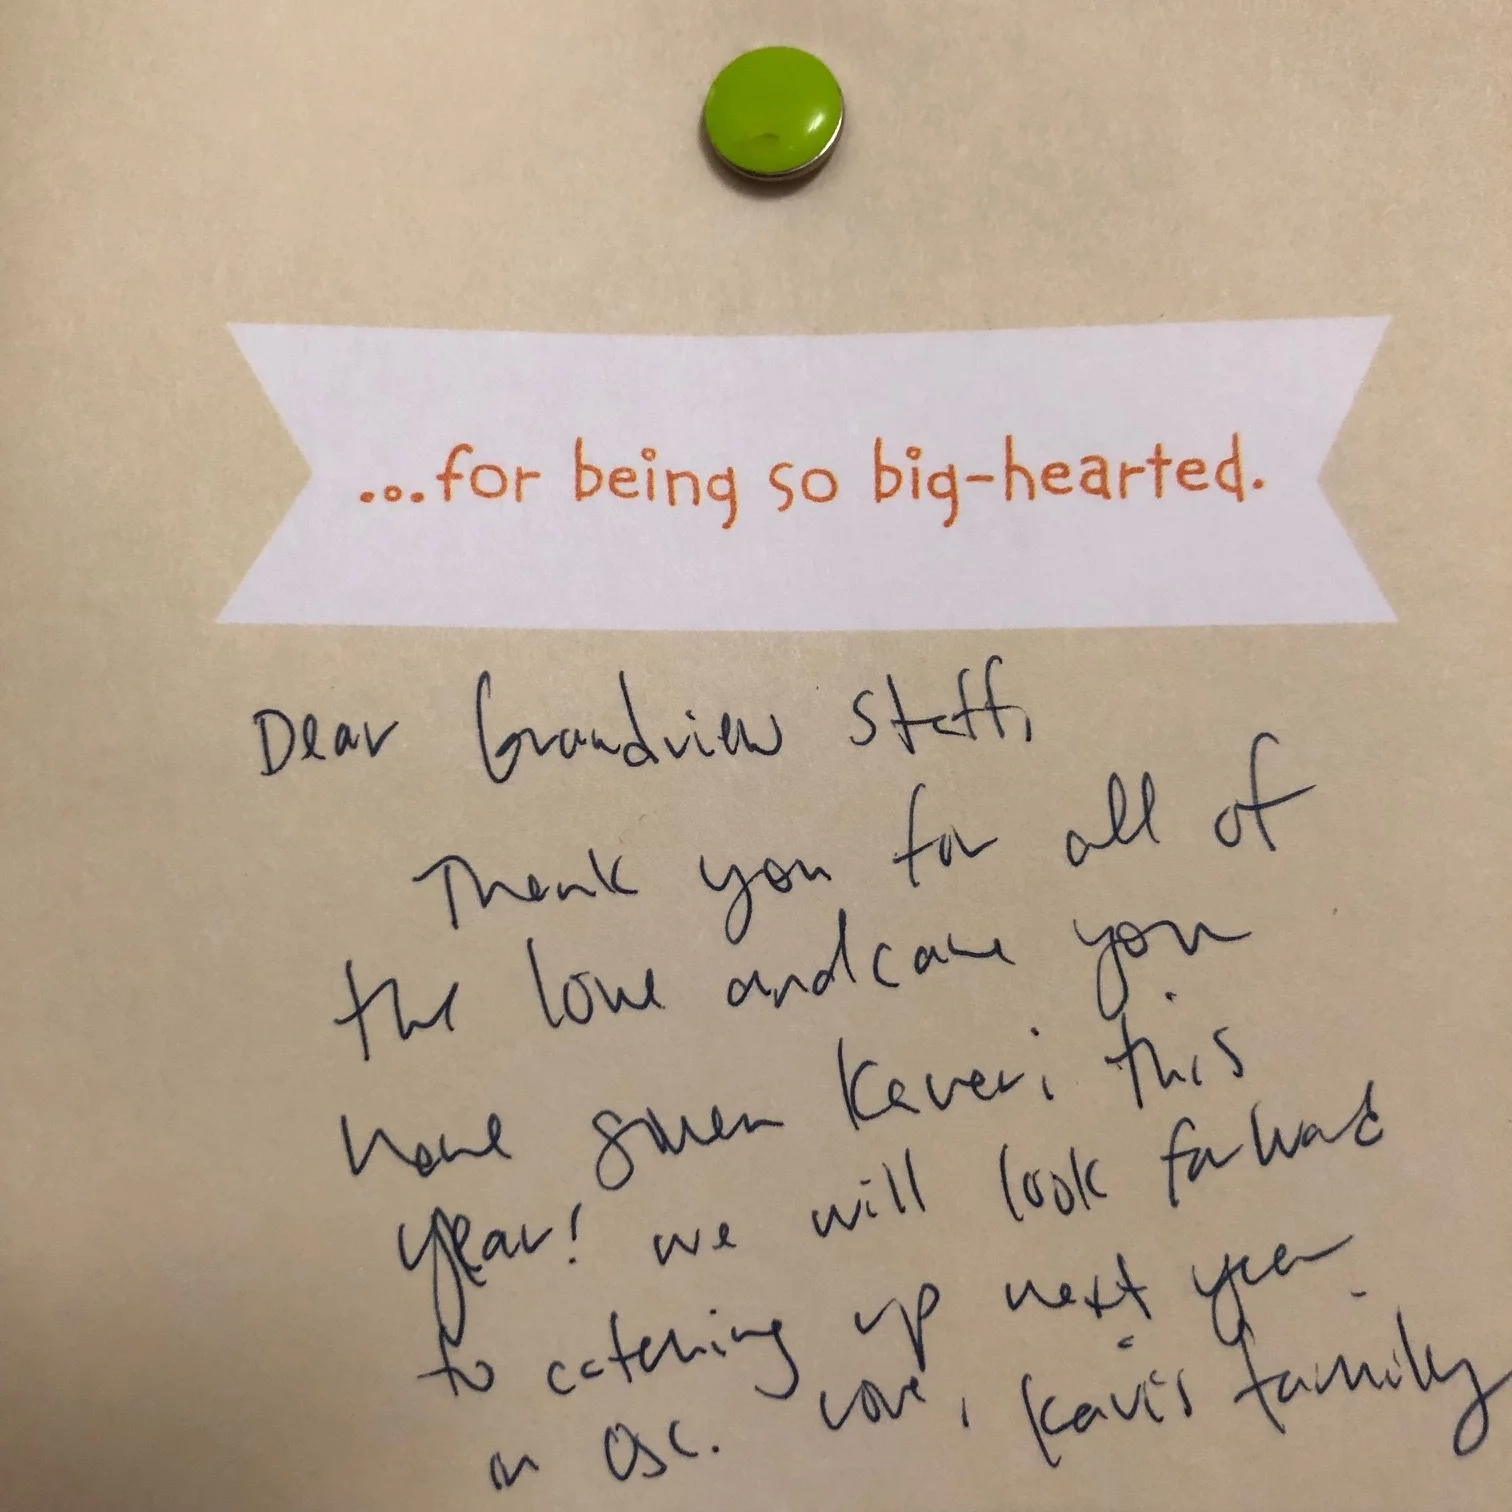 ...for being so big-hearted.
Dear Grandview Staff,
Thank you for all of
the love and care you
have given Kaveri this
year! we will look forward
to catching up next year
in OSC. Love, Kavi's family